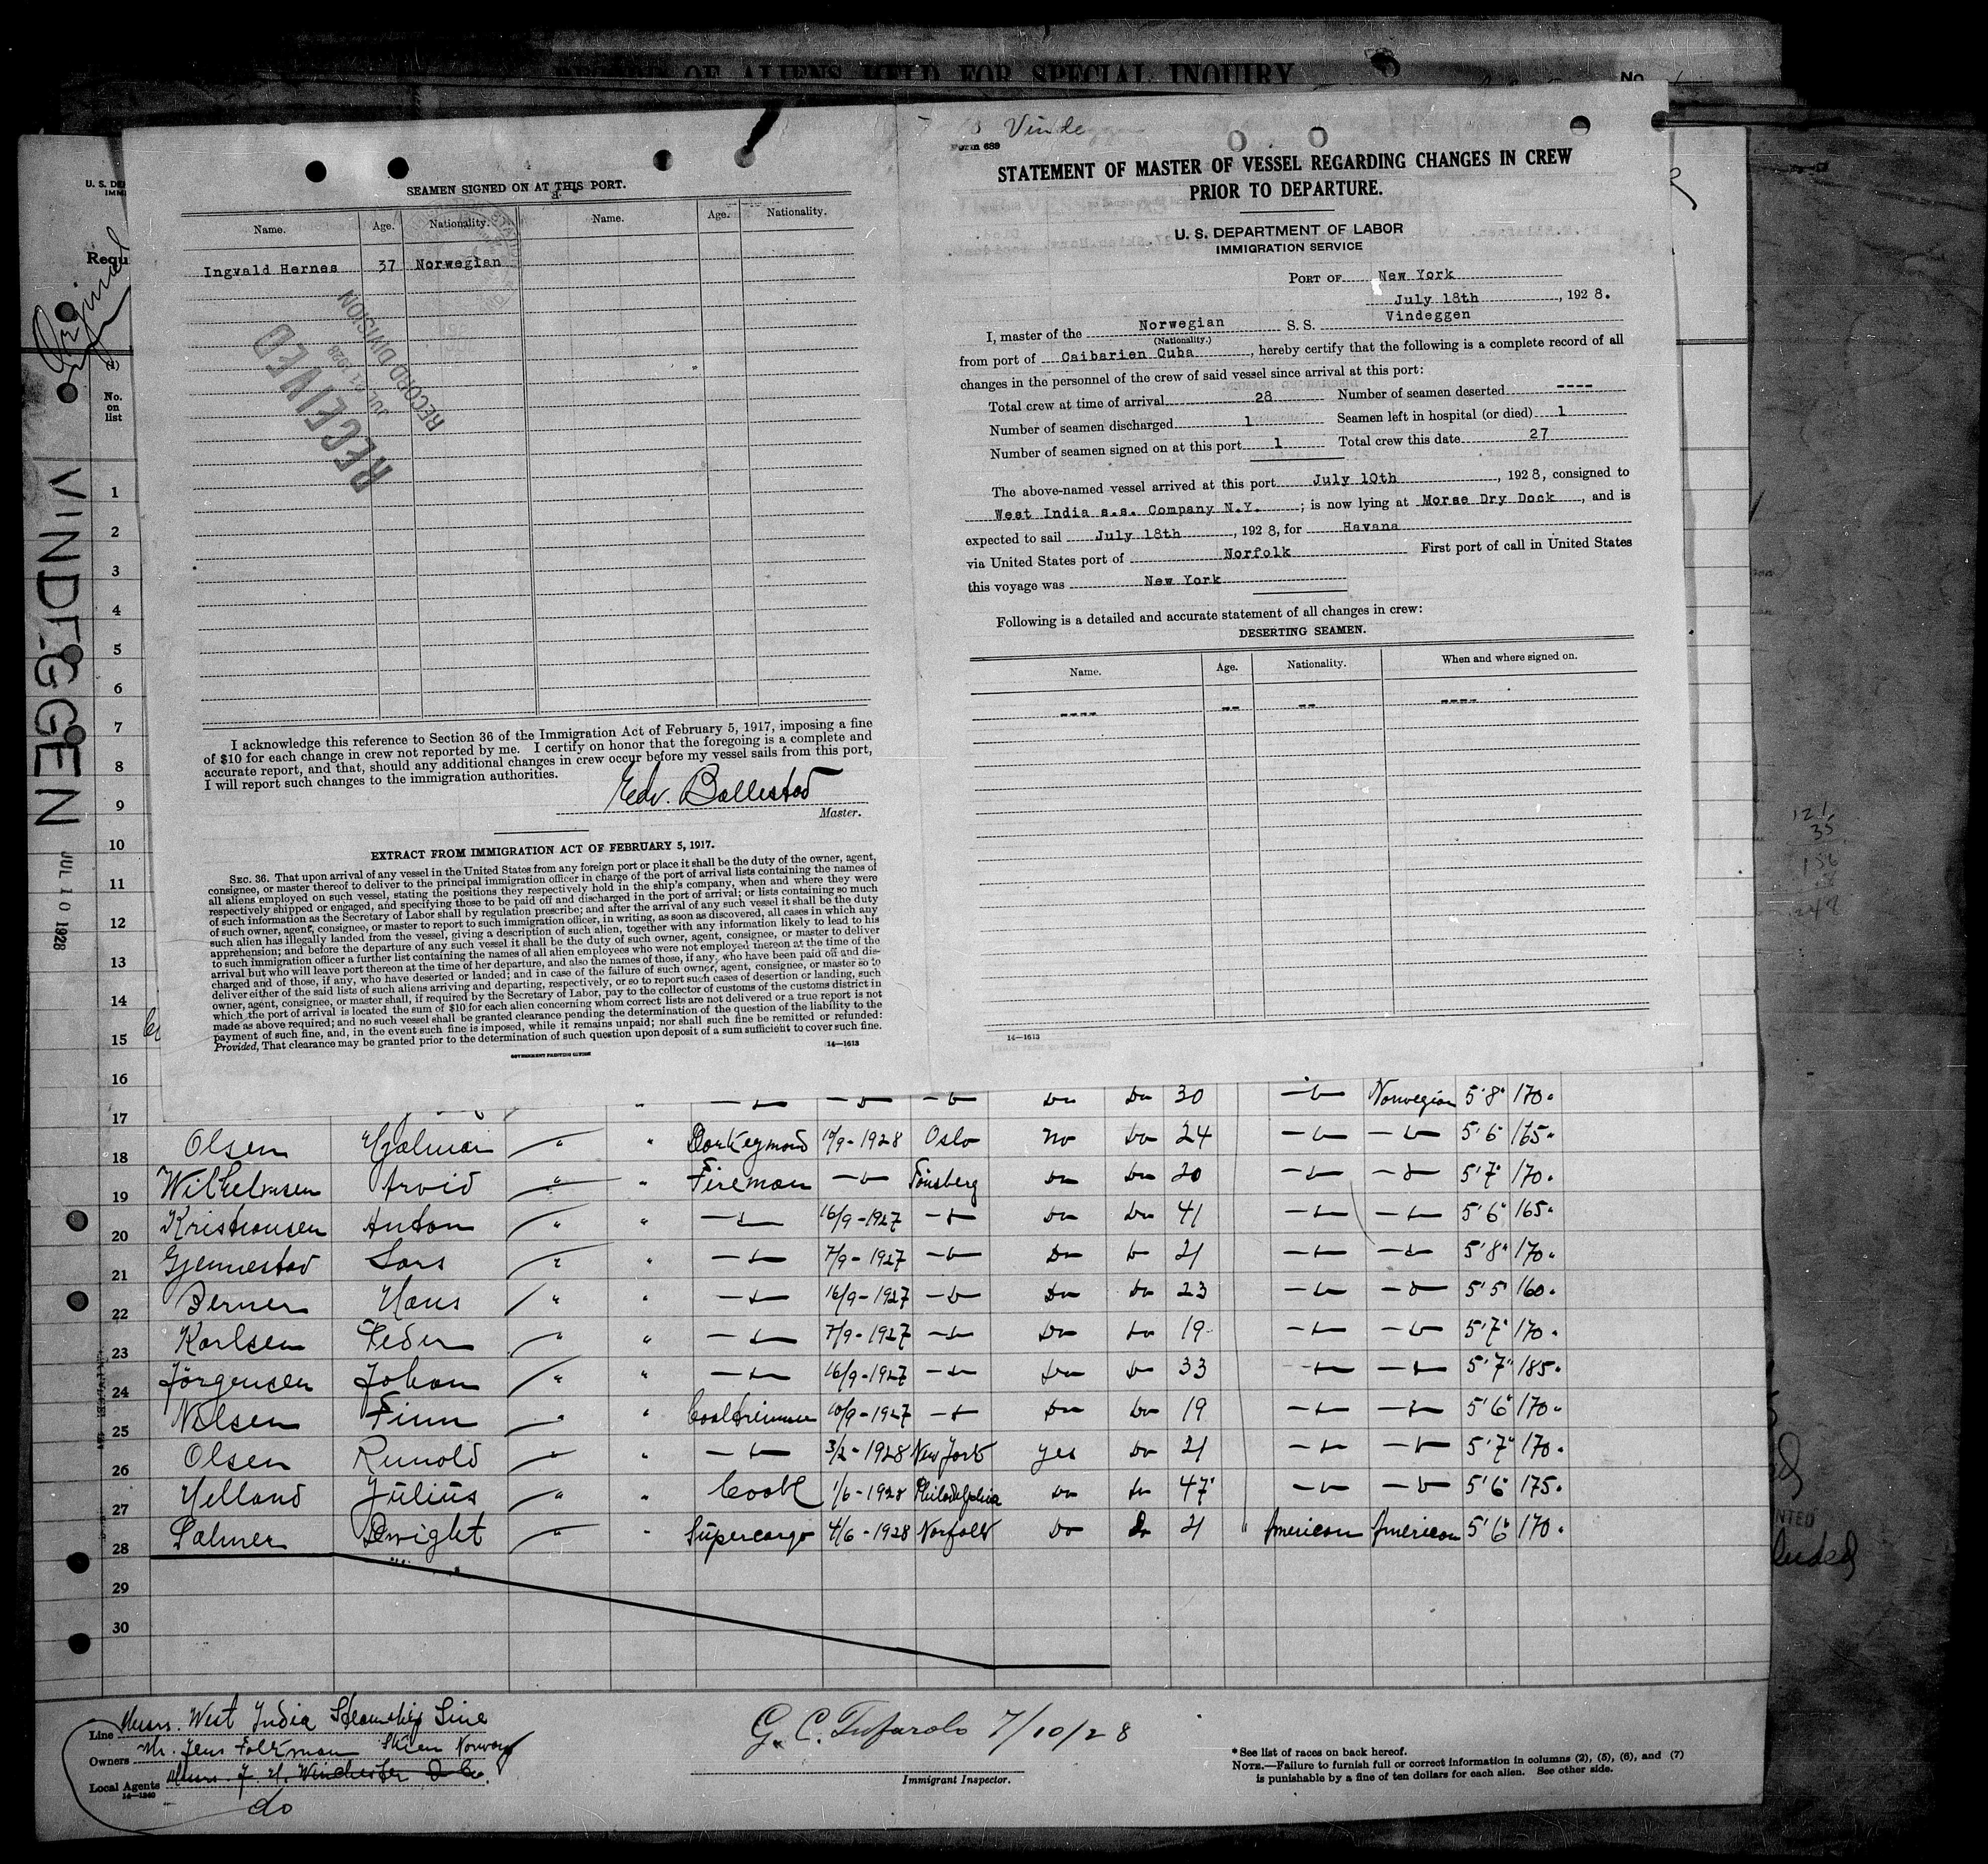 RECORD OF ALIENS HELD FOR SPECIAL INQUIRY
No.
SEAMEN SIGNED ON AT THIS PORT.
Name. Age. Nationality. Name. Age. Nationality.
Ingvald Hernes 37 Norwegian
RECEIVED
JUL 21 1928
RECORD DIVISION
I acknowledge this reference to Section 36 of the Immigration Act of February 5, 1917, imposing a fine
of $10 for each change in crew not reported by me. I certify on honor that the foregoing is a complete and
accurate report, and that, should any additional changes in crew occur before my vessel sails from this port,
I will report such changes to the immigration authorities.
Edv. Bollestad
Master.
EXTRACT FROM IMMIGRATION ACT OF FEBRUARY 5, 1917.
SEC. 36. That upon arrival of any vessel in the United States from any foreign port or place it shall be the duty of the owner, agent,
consignee, or master thereof to deliver to the principal immigration officer in charge of the port of arrival lists containing the names of
all aliens employed on such vessel, stating the positions they respectively hold in the ship's company, when and where they were
respectively shipped or engaged, and specifying those to be paid off and discharged in the port of arrival; or lists containing so much
of such information as the Secretary of Labor shall by regulation prescribe; and after the arrival of any such vessel it shall be the duty
of such owner, agent, consignee, or master to report to such immigration officer, in writing, as soon as discovered, all cases in which any
such alien has illegally landed from the vessel, giving a description of such alien, together with any information likely to lead to his
apprehension; and before the departure of any such vessel it shall be the duty of such owner, agent, consignee, or master to deliver
to such immigration officer a further list containing the names of all alien employees who were not employed thereon at the time of the
arrival but who will leave port thereon at the time of her departure, and also the names of those, if any, who have been paid off and dis-
charged and of those, if any, who have deserted or landed; and in case of the failure of such owner, agent, consignee, or master so to
deliver either of the said lists of such aliens arriving and departing, respectively, or so to report such cases of desertion or landing, such
owner, agent, consignee, or master shall, if required by the Secretary of Labor, pay to the collector of customs of the customs district in
which the port of arrival is located the sum of $10 for each alien concerning whom correct lists are not delivered or a true report is not
made as above required; and no such vessel shall be granted clearance pending the determination of the question of the liability to the
payment of such fine, and, in the event such fine is imposed, while it remains unpaid; nor shall such fine be remitted or refunded:
Provided, That clearance may be granted prior to the determination of such question upon deposit of a sum sufficient to cover such fine.
GOVERNMENT PRINTING OFFICE 14—1613
Vindeggen
Form 689
STATEMENT OF MASTER OF VESSEL REGARDING CHANGES IN CREW
PRIOR TO DEPARTURE.
U. S. DEPARTMENT OF LABOR
IMMIGRATION SERVICE
PORT OF New York
July 18th, 1928.
I, master of the Norwegian S. S. Vindeggen
(Nationality.)
from port of Caibarien Cuba, hereby certify that the following is a complete record of all
changes in the personnel of the crew of said vessel since arrival at this port:
Total crew at time of arrival 28 Number of seamen deserted ----
Number of seamen discharged 1 Seamen left in hospital (or died) 1
Number of seamen signed on at this port 1 Total crew this date 27
The above-named vessel arrived at this port July 10th, 1928, consigned to
West India s.s. Company N.Y.; is now lying at Morse Dry Dock, and is
expected to sail July 18th, 1928, for Havana
via United States port of Norfolk First port of call in United States
this voyage was New York
Following is a detailed and accurate statement of all changes in crew:
DESERTING SEAMEN.
Name. Age. Nationality. When and where signed on.
---- -- -- ----
14—1613
U. S. DE
IMMI
Requ
Original
No. on list
VINDEGGEN
JUL 10 1928
1
2
3
4
5
6
7
8
9
10
11
12
13
14
15
16
17 Do Do 30 Norwegian 5'8" 170
18 Olsen Hjalmar " " Donkeymand 19/9-1928 Oslo No Do 24 5'6 165
19 Wilhelmsen Arvid " " Fireman Tönsberg Do Do 20 5'7" 170
20 Kristiansen Anton " " 16/9-1927 Do Do 41 5'6" 165
21 Gjennestad Lars " " 7/9-1927 Do Do 21 5'8" 170
22 Berner Hans " " 16/9-1927 Do Do 23 5'5 160
23 Karlsen Peder " " 7/9-1927 Do Do 19 5'7" 170
24 Jörgensen Johan " " 16/9-1927 Do Do 33 5'7" 185
25 Nilsen Finn " " Coaltrimmer 10/9-1927 Do Do 19 5'6" 170
26 Olsen Runold " " 3/2-1928 New York yes Do 21 5'7" 170
27 Helland Julius " " Cook 1/6-1928 Philadelphia Do Do 47 5'6" 175
28 Palmer Dwight " " Supercargo 4/6-1928 Norfolk Do Do 21 " American American 5'6" 170
29
30
Line Messrs. West India Steamship Line
Owners Mr. Jens Folkman Skien Norway
Local Agents Messrs. J. H. Winchester & Co.
14—1240
do
G. C. Tufarolo 7/10/28
Immigrant Inspector.
* See list of races on back hereof.
NOTE.—Failure to furnish full or correct information in columns (2), (5), (6), and (7)
is punishable by a fine of ten dollars for each alien. See other side.
121
35
156
248
NTED
luded